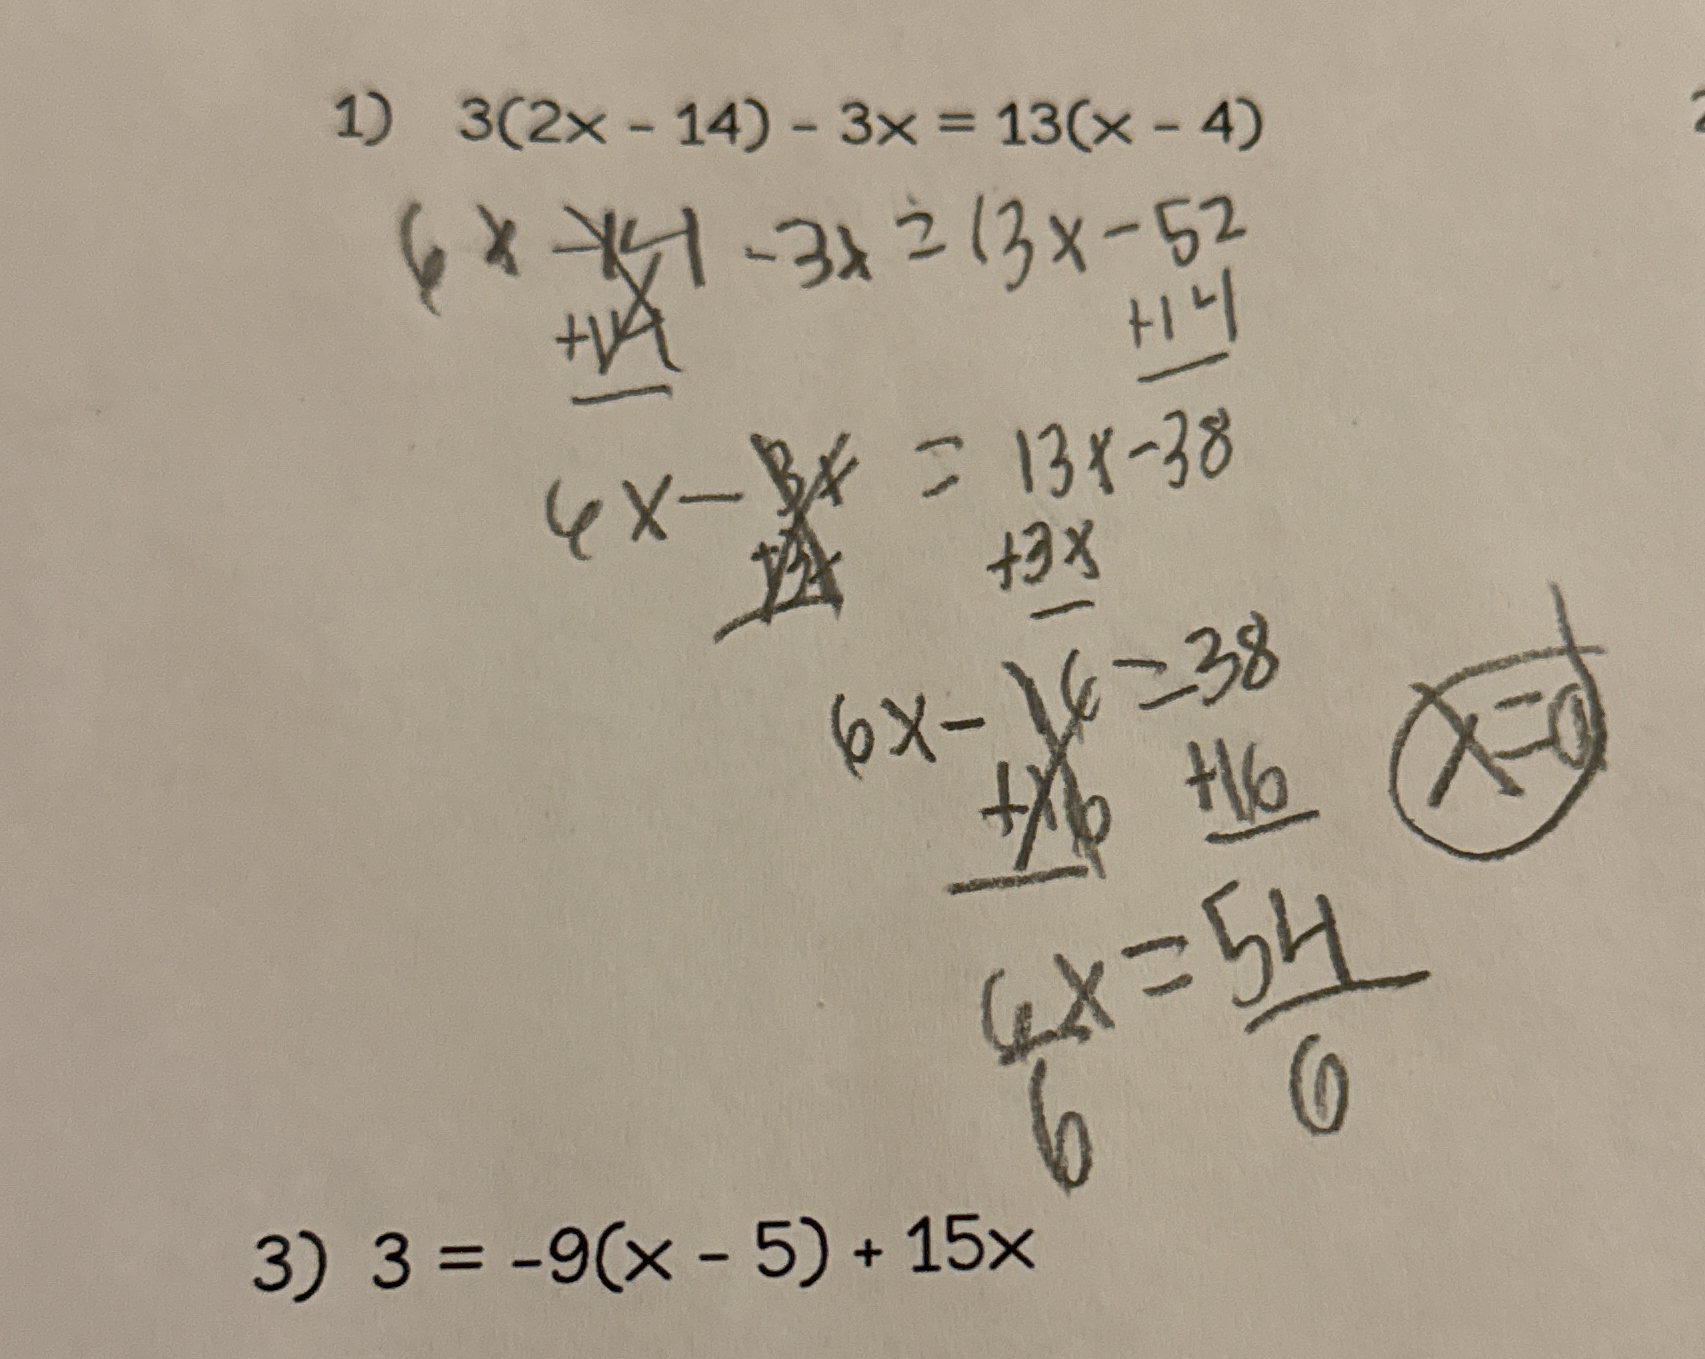 1) 3(2x - 14) - 3x = 13(x - 4)
6x - 14 - 3x = 13x - 52
+14 +14
6x - 3x = 13x - 38
+3x +3x
6x - 16 = 38
+16 +16
x=9
6x = 54
6 6
3) 3 = -9(x - 5) + 15x